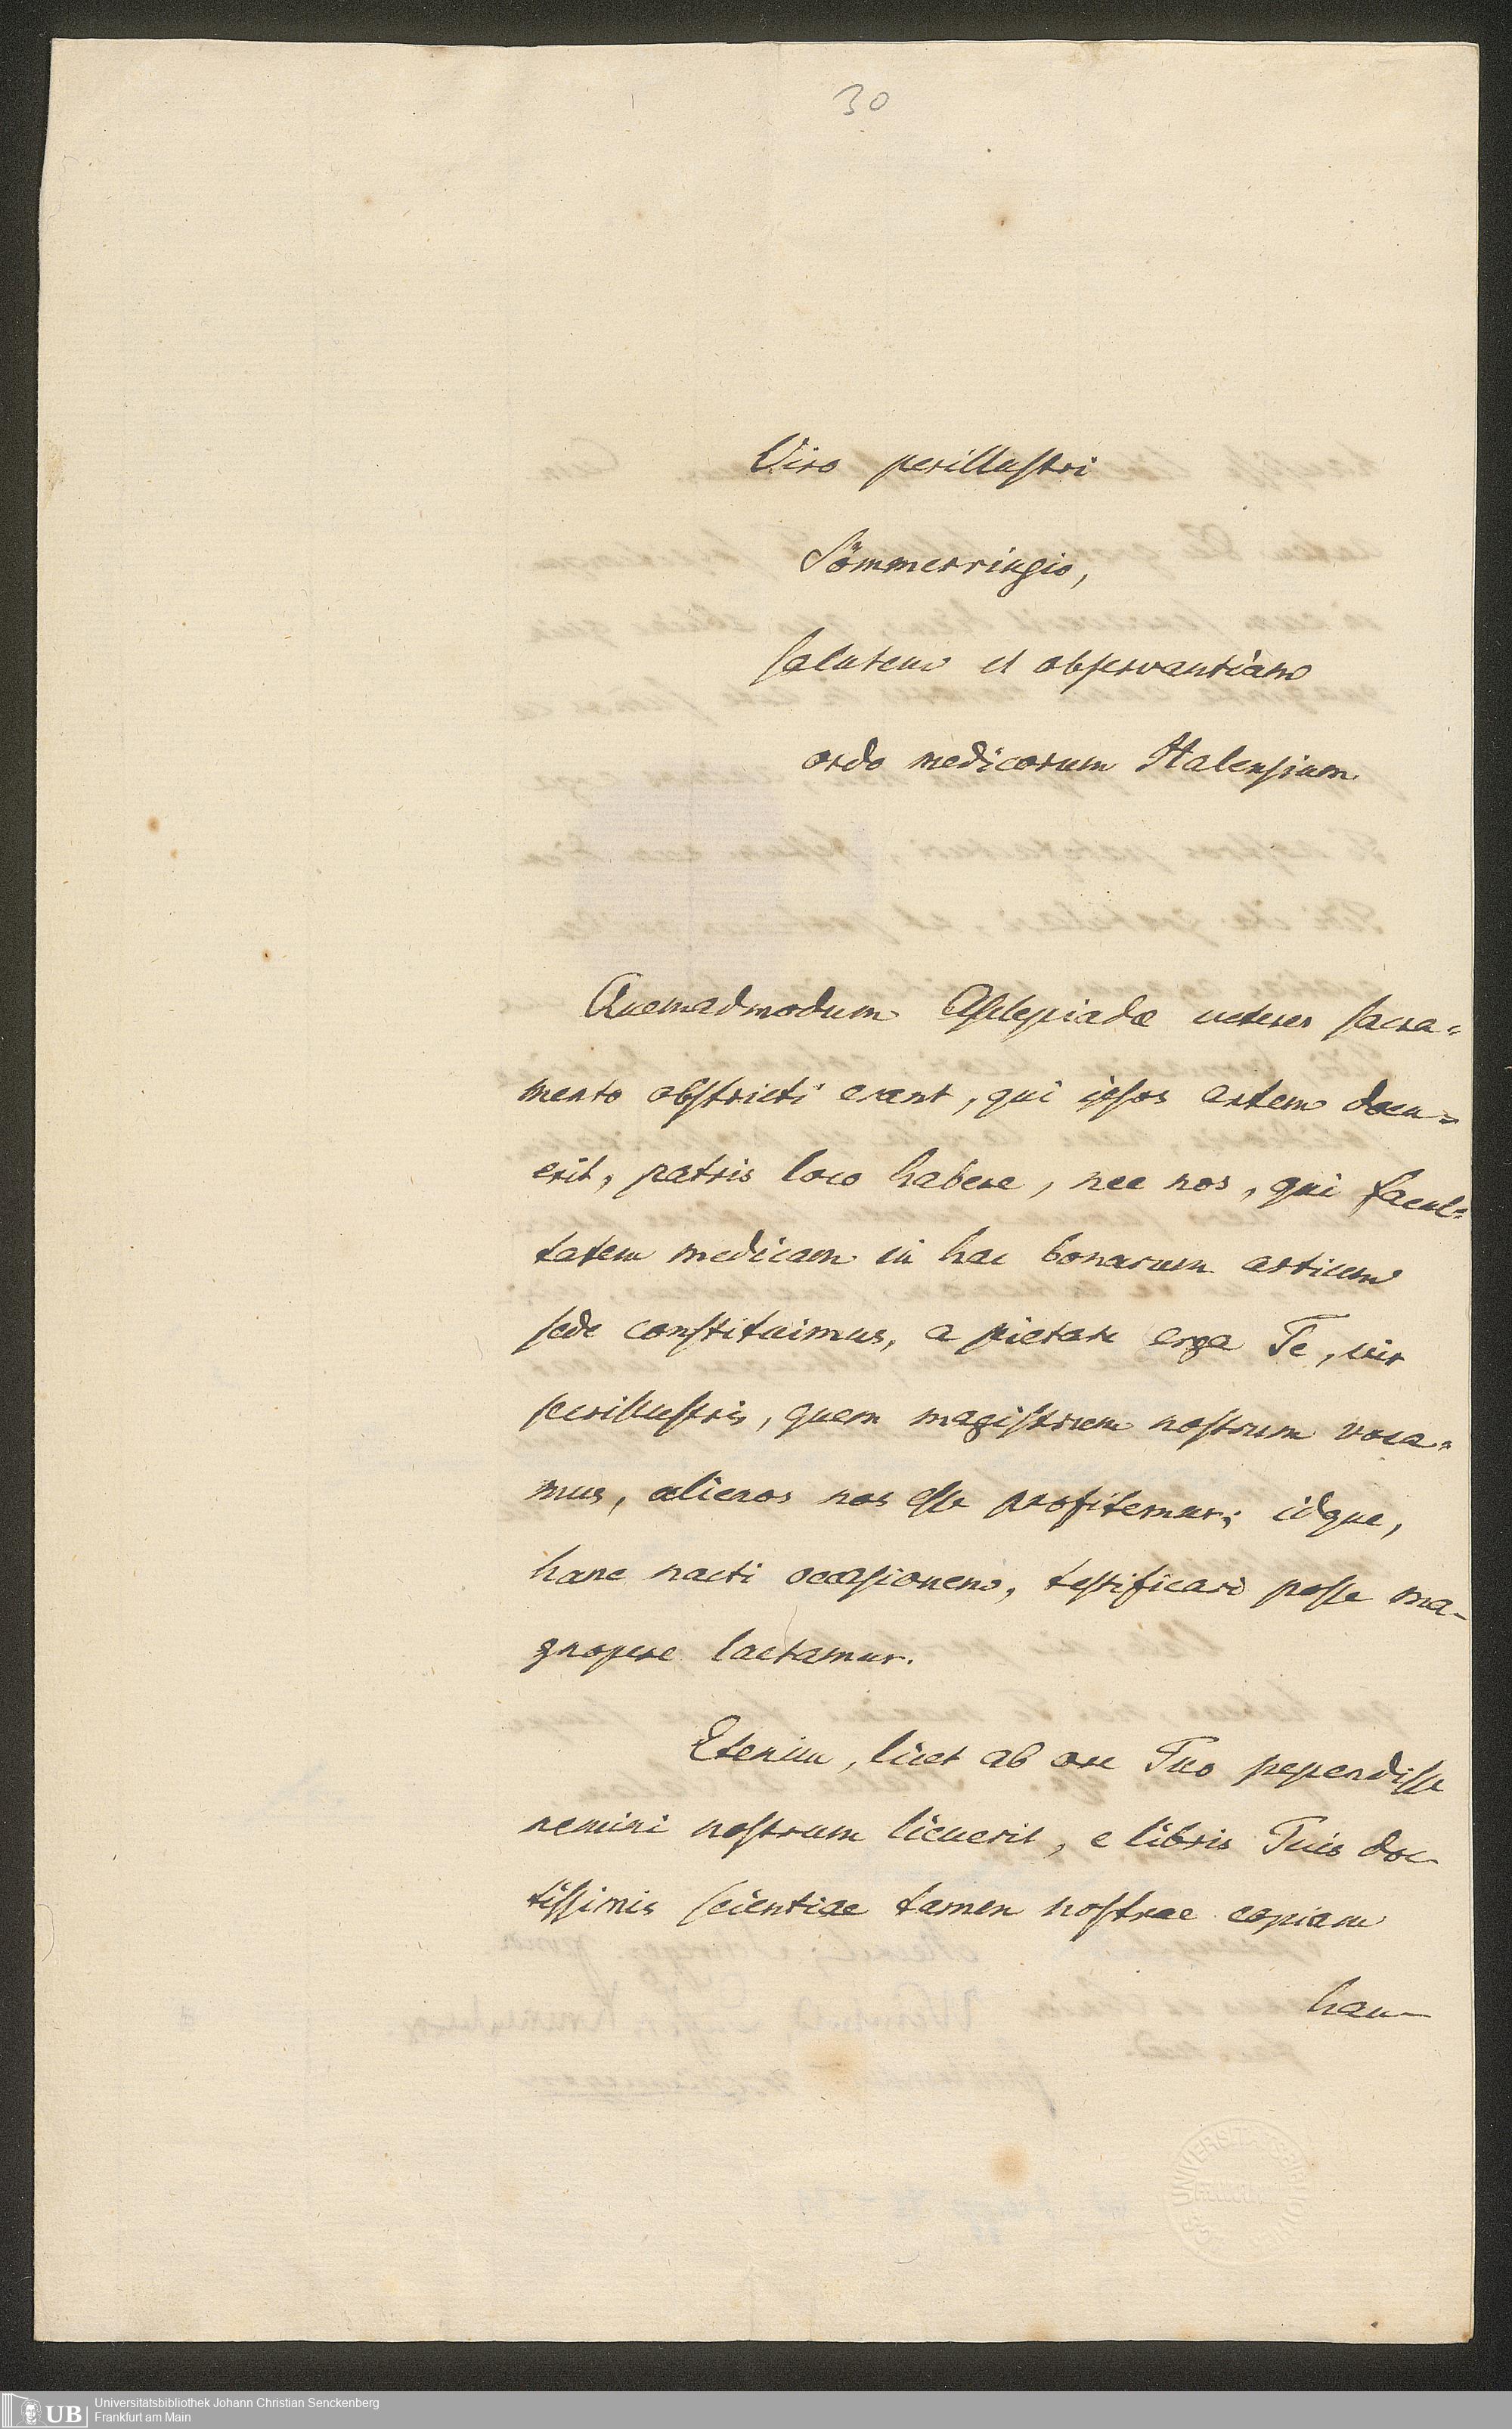 30
Viro perillustri
Sömmerringio,
salutem et observantiam
ordo medicorum Halensium.
Quemadmodum Asclepiadae veteres sacra=
mento obstricti erant, qui ipsos artem docu=
erit, patris loco habere, nec nos, qui facul=
tatem medicam in hac bonarum artium
sede constituimus, a pietate erga Te, vir
perillustris, quem magistrum nostrum voca=
mus, alienos nos esse profitemur; idque,
hanc nacti occasionem, testificari posse ma-
gnopere laetamur.
Etenim, licet ab ore Tuo pependisse
nemini nostrum licuerit, e libris Tuis doc-
tissimis scientiae tamen nostrae copiam
hau-
UB
Universitätsbibliothek Johann Christian Senckenberg
Frankfurt am Main